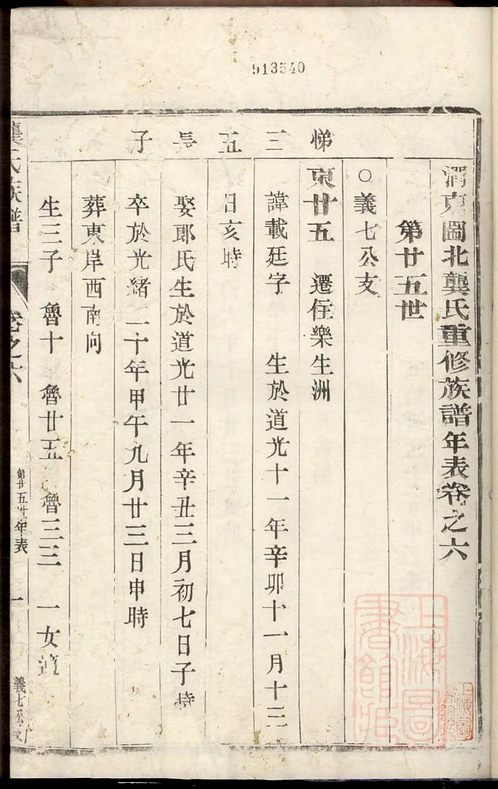 913540
圌北龔氏重修族譜年表卷之六
第廿五世
○義七公支
悌 東廿五 遷住樂生洲
三 諱載廷字 生於道光十一年辛卯十一月十三
五 日亥時
長 娶郎氏生於道光廿一年辛丑三月初七日子時
子 卒於光緒二十年甲午九月廿三日申時
葬東岸西南向
生三子 魯十 魯廿五 魯三三 一女適
龔氏族譜 卷之六 第廿五世年表 一 義七公支
上海圖書館